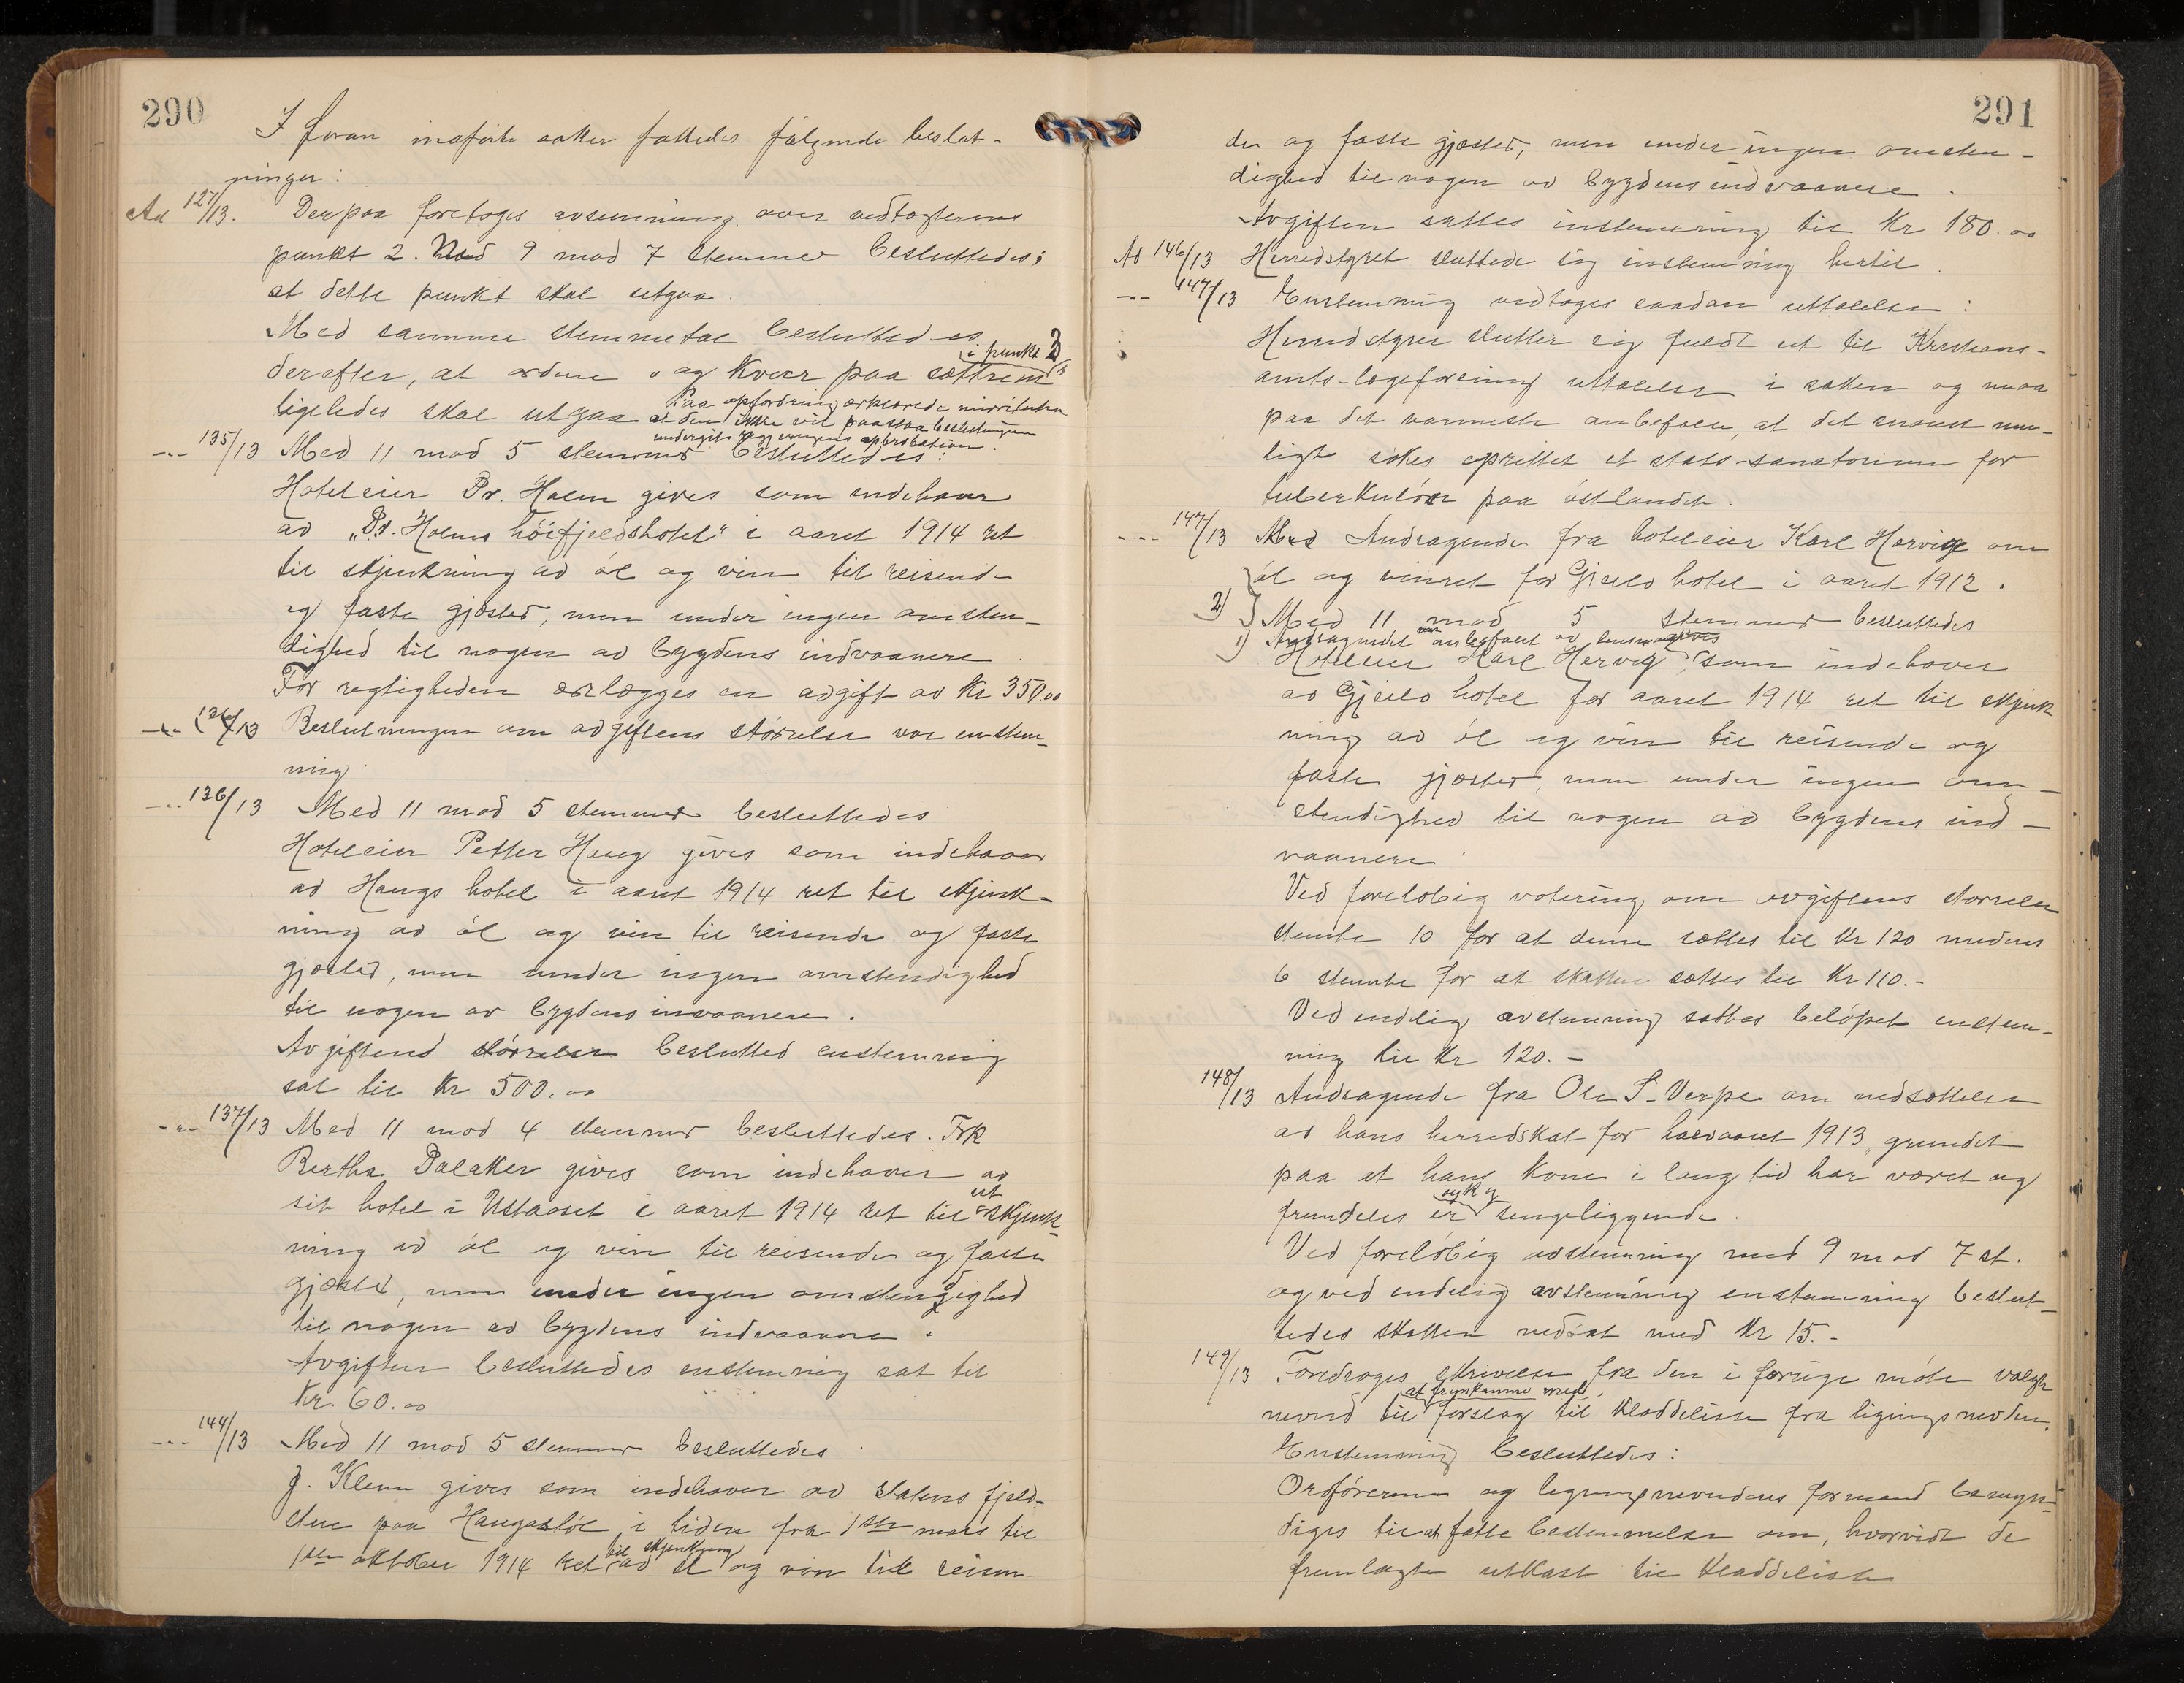 290
I foran inaførte saker fattedes følgende beslut-
ninger:
Ad 127/13. Derpaa foretoges avstemning over vedtægterens
punkt 2. Med 9 mod 7 stemmer besluttedes;
at dette punkt skal utgaa.
Med samme stemmetal besluttedes
i punkt 3
derefter, at ordene "og kveer paa sættrem"
ligeledes skal utgaa Paa opfordring erklærede minoriteten
at den ikke vil paastaa beslutningen
undergit regjeringens approbation.
-"- 135/13 Med 11 mod 5 stemmer besluttedes:
Hoteleier Dr. Holm gives som indehaver
av „Dr. Holms höifjeldshotel" i aaret 1914 ret
til skjenkning av öl og vin til reisende
og faste gjæster, men under ingen omsten-
dighed til nogen av bygdens indvaanere.
For rettigheden erlægges en avgift av Kr 350.00
-"- 136/13 Beslutningen om avgiftens størrelse var enstem-
mig.
-"- 136/13 Med 11 mod 5 stemmer besluttedes
Hoteleier Petter Haug gives som indehaver
av Haugs hotel i aaret 1914 ret til skjenk-
ning av öl og vin til reisende og faste
gjæster, men under ingen omstendighed
til nogen av bygdens invaanere.
Avgiftens störrelse besluttes enstemmig
sat til Kr 500.00
-"- 137/13 Med 11 mod 4 stemmer besluttedes. Frk
Bertha Dalaker gives som indehaver av
sit hotel i Ustaoset i aaret 1914 ret til ut skjenk-
ning av öl og vin til reisende og faste
gjæster, men under ingen omstendighed
til nogen av bygdens indvaanere.
Avgiften besluttedes enstemmig sat til
Kr. 60.00
-"- 144/13 Med 11 mod 5 stemmer besluttedes
J. Klem gives som indehaver av statens fjeld-
stue paa Haugastöl i tiden fra 1ste mars til
1ste oktober 1914 ret til skjenkning av öl og vin til reisen-
291
de og faste gjæster, men under ingen omsten-
dighed til nogen av bygdens indvaanere.
Avgiften sattes enstemmig til Kr 180.00
Ad 146/13 Herredstyret sluttede sig enstemmig hertil.
-"- 147/13 Enstemmig vedtoges saadan uttalelse:
Herredstyret slutter sig fuldt ut til Kristians-
amts-lægeforening uttalelse i saken og maa
paa det varmeste anbefale, at det snarest mu-
ligt søkes oprettet et stats-sanatorium for
tuberkulöse paa östlandet.
-"- 147/13 Andragende fra hoteleier Karl Hervig om
öl og vinret for Gjeilo hotel i aaret 1912.
2) Med 11 mod 5 stemmer besluttedes
1) Andragendet var anbefalt av lensmanden
Hoteleier Karl Hervig gives som indehaver
av Gjeilo hotel for aaret 1914 ret til skjenk
ning av öl og vin til reisende og
faste gjæster, men under ingen om-
stendighed til nogen av bygdens ind-
vaanere.
Ved foreløbig votering om avgiftens størrelse
stemte 10 for at denne sættes til Kr 120 medens
6 stemte for at skatten sættes til Kr 110.-
Ved endelig avstemning sattes beløpet enstem-
mig til Kr 120.-
148/13 Andragende fra Ole S. Verpe om nedsættelse
av hans herredskat for halvaaret 1913, grundet
paa at hans kone i lang tid har været og
fremdeles er syk og sengeliggende.
Ved foreløbig avstemning med 9 mod 7 st.
og ved endelig avstemning enstemmig beslut-
tedes skatten nedsat med Kr 15.-
149/13 Foredroges skrivelse fra den i forrige möte valgte
nevnd til at fremkomme med forslag til kladdeliste fra ligningsnevnden.
Enstemmig besluttedes:
Ordföreren og ligningsnevndens formand bemyn-
diges til at fatte bestemmelse om, hvorvidt de
fremlagte utkast til kladdeliste